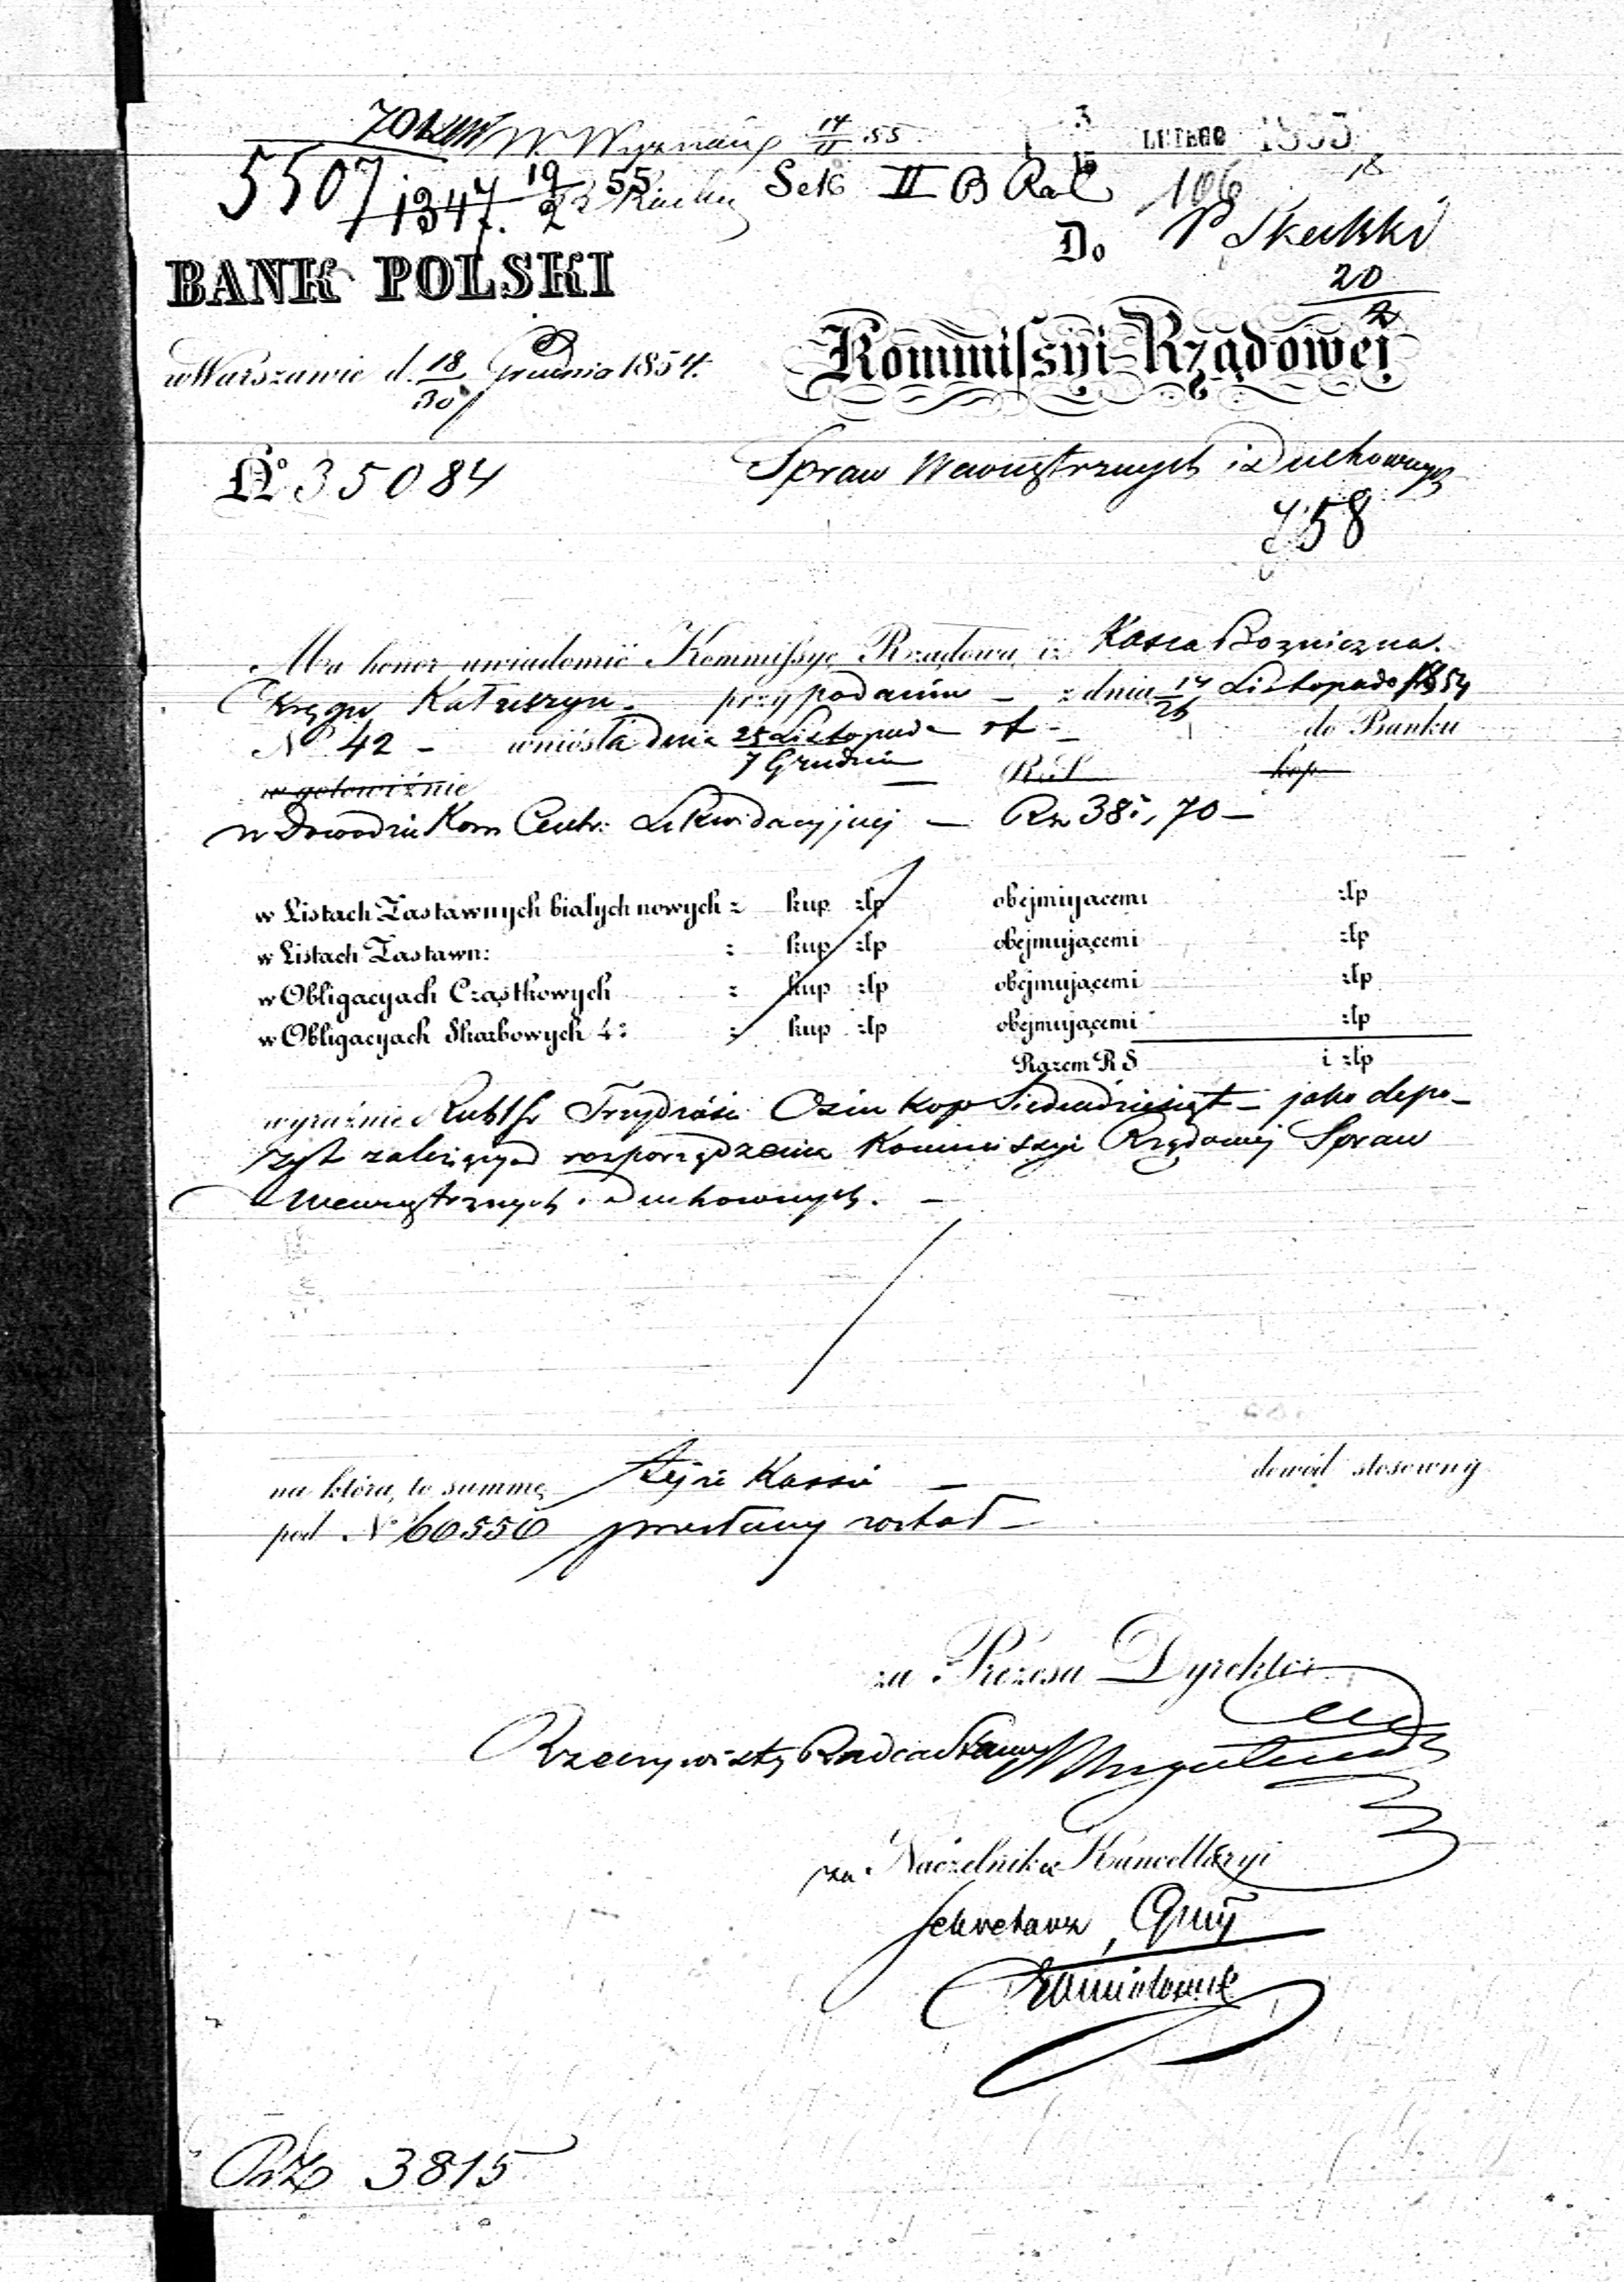 14/11 55.
3 LUTEGO 1855
5507 1347. 19/2 55 Sek II B Ral 106 18
Do P Skulski
20/2
BANK POLSKI
w Warszawie d. 18/30 Grudnia 1854.
Kommissyi Rządowej
No 35084
Spraw Wewnętrznych i Duchownych
758
Ma honor uwiadomić Kommissyę Rządową, iż Kassa Bożniczna
Okręgu Kałuszyn. przy podaniu — z dnia 14/26 Listopada 1854
No 42 — wniosła dnia 25 Listopada / 7 Grudnia rb — do Banku
w gotowiźnie — R. S. kop
w Dowodzie Kom Centr: Likwidacyjnej — Rs 38:, 70 —
w Listach Zastawnych białych nowych : kup złp obejmiyącemi złp
w Listach Zastawn: : kup złp obejmującemi złp
w Obligacyach Cząstkowych : kup złp obejmującemi złp
w Obligacyach Skarbowych 4: : kup złp obejmującemi złp
Razem R S i złp
wyraźnie Rubli sr Trzydzieści Ośm kop Siedmdziesiąt — jako depo-
zyt zależący od rozporządzenia Kommissyi Rządowej Spraw
Wewnętrznych i Duchownych. —
na którą, to summę tejże Kassie — dowód stosowny
pod No 60550 przesłany został —
za Prezesa Dyrektor
Rzeczywisty Radca Stanu
za Naczelnika Kancellaryi
Sekretarz,
3815